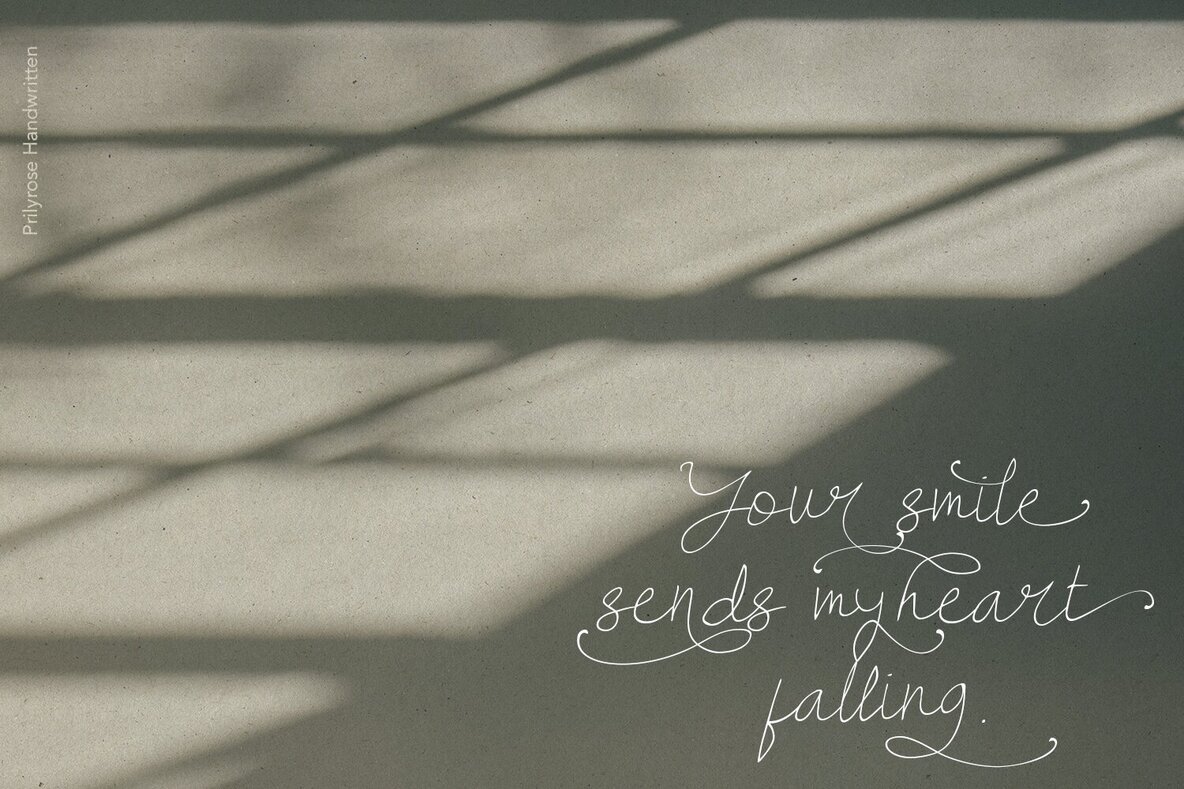 Prilyrose Handwritten
Your smile
sends my heart
falling.